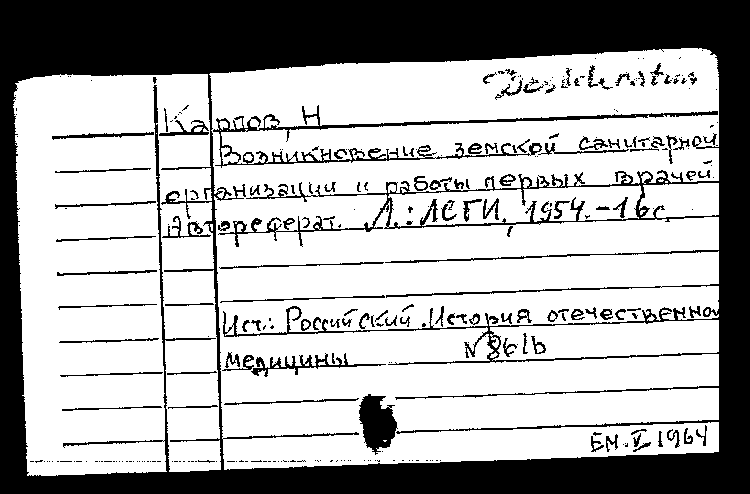 Desideratum
Карпов, Н
Возникновение земской санитарной
организации и работы первых врачей
Автореферат. Л.: ЛСГИ, 1954. - 16 с.
Ист.: Российский. История отечественной
медицины №861b
БМ. V 1964